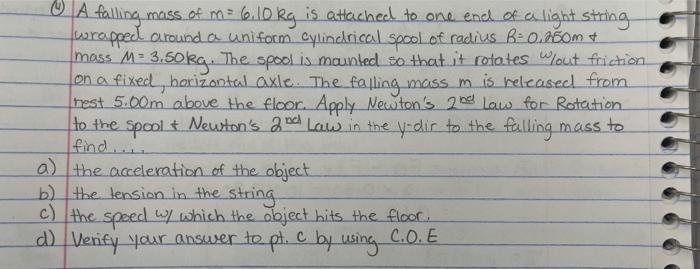 ④ A falling mass of m = 6.10 kg is attached to one end of a light string
wrapped around a uniform cylindrical spool of radius R = 0.250m &
mass M = 3.50kg. The spool is mounted so that it rotates w/out friction
on a fixed, horizontal axle. The falling mass m is released from
rest 5.00m above the floor. Apply Newton's 2nd Law for Rotation
to the spool & Newton's 2nd Law in the y-dir to the falling mass to
find....
a) the acceleration of the object
b) the tension in the string
c) the speed w/ which the object hits the floor.
d) Verify your answer to pt. c by using C.O.E